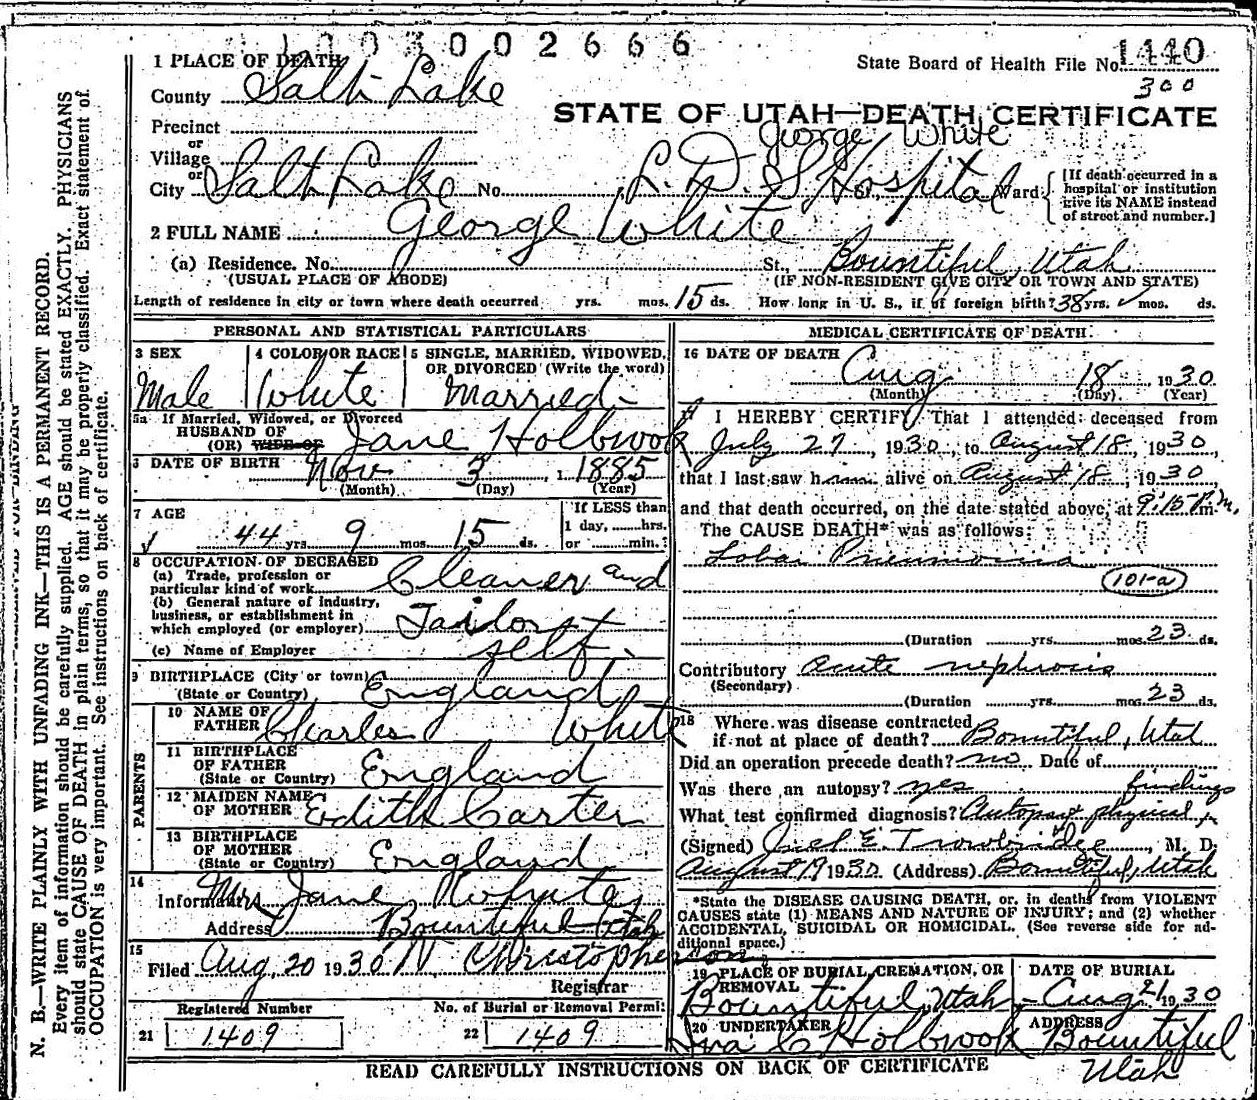 1003002666
1 PLACE OF DEATH
State Board of Health File No. 1440
300
County Salt Lake
STATE OF UTAH—DEATH CERTIFICATE
George White
Precinct
or
Village
or
City Salt Lake No. L. D. S Hospital St., Ward
[If death occurred in a
hospital or institution
give its NAME instead
of street and number.]
2 FULL NAME George White
(a) Residence. No. St., Bountiful, Utah
(USUAL PLACE OF ABODE) (IF NON-RESIDENT GIVE CITY OR TOWN AND STATE)
Length of residence in city or town where death occurred yrs. mos. 15 ds. How long in U. S., if of foreign birth? 38 yrs. mos. ds.
PERSONAL AND STATISTICAL PARTICULARS
3 SEX
Male
4 COLOR OR RACE
White
5 SINGLE, MARRIED, WIDOWED,
OR DIVORCED (Write the word)
Married
5a If Married, Widowed, or Divorced
HUSBAND OF
(OR) WIFE OF Jane Holbrook
6 DATE OF BIRTH Nov 3, 1885
(Month) (Day) (Year)
7 AGE
44 yrs. 9 mos. 15 ds.
If LESS than
1 day, hrs.
or min.?
8 OCCUPATION OF DECEASED
(a) Trade, profession or
particular kind of work Cleaner and
(b) General nature of industry,
business, or establishment in
which employed (or employer) Tailor
(c) Name of Employer self
9 BIRTHPLACE (City or town)
(State or Country) England
PARENTS
10 NAME OF
FATHER Charles White
11 BIRTHPLACE
OF FATHER
(State or Country) England
12 MAIDEN NAME
OF MOTHER Edith Carter
13 BIRTHPLACE
OF MOTHER
(State or Country) England
14
Informant Mrs Jane White
Address Bountiful Utah
15
Filed Aug. 20 1930 N. Christopherson
Registrar
Registered Number
21 1409
No. of Burial or Removal Permit
22 1409
MEDICAL CERTIFICATE OF DEATH
16 DATE OF DEATH
Aug 18 1930
(Month) (Day) (Year)
17 I HEREBY CERTIFY, That I attended deceased from
July 27, 1930, to August 18, 1930
that I last saw him alive on August 18, 1930
and that death occurred, on the date stated above, at 9:15 P.m.
The CAUSE DEATH* was as follows:
Lobar Pneumonia
101-a
(Duration yrs. mos. 23 ds.
Contributory Acute nephrosis
(Secondary)
(Duration yrs. mos. 23 ds.
18 Where was disease contracted
if not at place of death? Bountiful, Utah
Did an operation precede death? no Date of
Was there an autopsy? yes findings
What test confirmed diagnosis? Autopsy & physical
(Signed) Joel E. Trowbridge, M. D.
August 19 1930 (Address) Bountiful, Utah
*State the DISEASE CAUSING DEATH, or, in deaths from VIOLENT
CAUSES state (1) MEANS AND NATURE OF INJURY; and (2) whether
ACCIDENTAL, SUICIDAL OR HOMICIDAL. (See reverse side for ad-
ditional space.)
19 PLACE OF BURIAL, CREMATION, OR
REMOVAL
Bountiful, Utah
DATE OF BURIAL
Aug 21 1930
20 UNDERTAKER
Iva C Holbrook
ADDRESS
Bountiful
Utah
READ CAREFULLY INSTRUCTIONS ON BACK OF CERTIFICATE
N. B.—WRITE PLAINLY WITH UNFADING INK—THIS IS A PERMANENT RECORD.
Every item of information should be carefully supplied. AGE should be stated EXACTLY. PHYSICIANS
should state CAUSE OF DEATH in plain terms, so that it may be properly classified. Exact statement of
OCCUPATION is very important. See instructions on back of certificate.